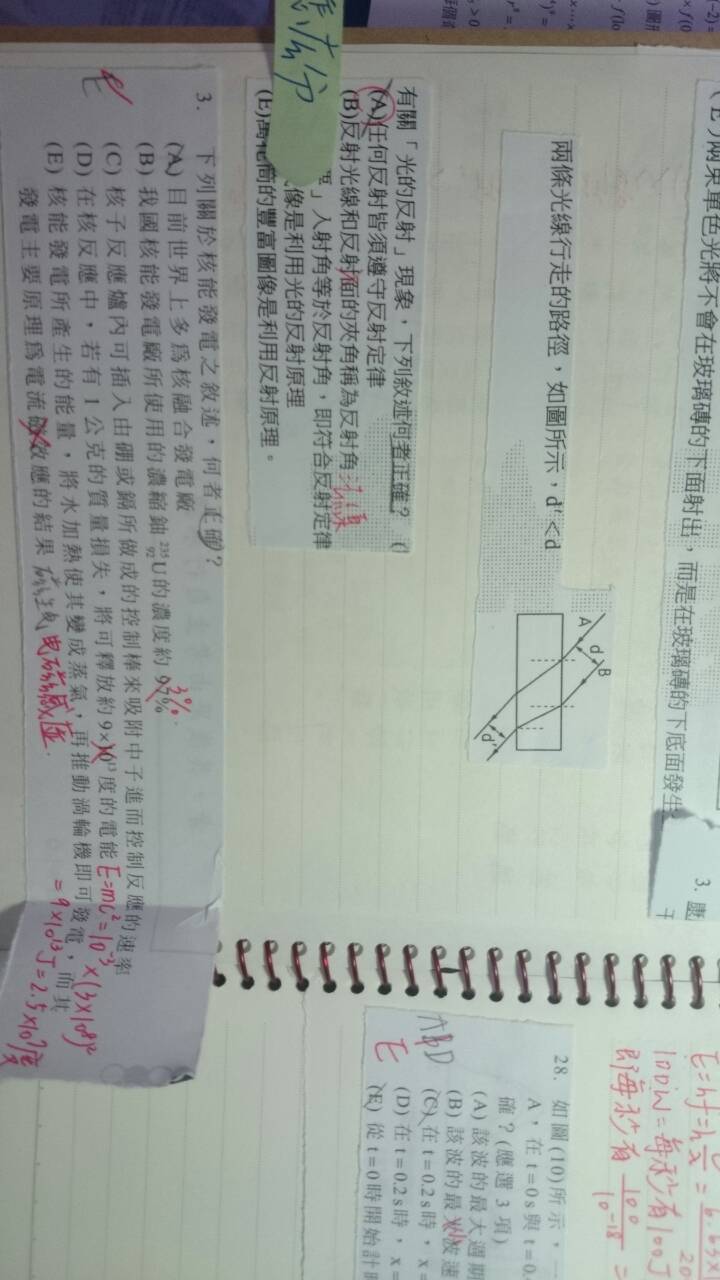 (E)兩束單色光將不會在玻璃磚的下面射出，而是在玻璃磚的下底面發生
兩條光線行走的路徑，如圖所示，d'<d
A
d
B
d'
有關「光的反射」現象，下列敘述何者正確？(
(A)任何反射皆須遵守反射定律
(B)反射光線和反射面的夾角稱為反射角 法線
」入射角等於反射角，即符合反射定律
像是利用光的反射原理
(E)萬花筒的豐富圖像是利用反射原理。
3. 下列關於核能發電之敘述，何者正確？
(A) 目前世界上多為核融合發電廠
(B) 我國核能發電廠所使用的濃縮鈾 ²³⁵₉₂U的濃度約 97% 3%
(C) 核子反應爐內可插入由硼或鎘所做成的控制棒來吸附中子進而控制反應的速率
(D) 在核反應中，若有 1 公克的質量損失，將可釋放約 9×10¹³度的電能 E=mc²=10⁻³×(3×10⁸)²
=9×10¹³J=2.5×10⁷度
(E) 核能發電所產生的能量，將水加熱使其變成蒸氣，再推動渦輪機即可發電，而其
發電主要原理為電流磁效應的結果 電磁感應
E
3.
28. 如圖(10)所示，一
A，在 t=0s 與 t=0.
確？(應選 3 項)
(A) 該波的最大週期
(B) 該波的最小波速
(C) 在 t=0.2s時，x=
(D) 在 t=0.2s時，x=
(E) 從 t=0時開始計時
ABD
E
100W=每秒有100J
即每秒有 100/10⁻¹⁸ =